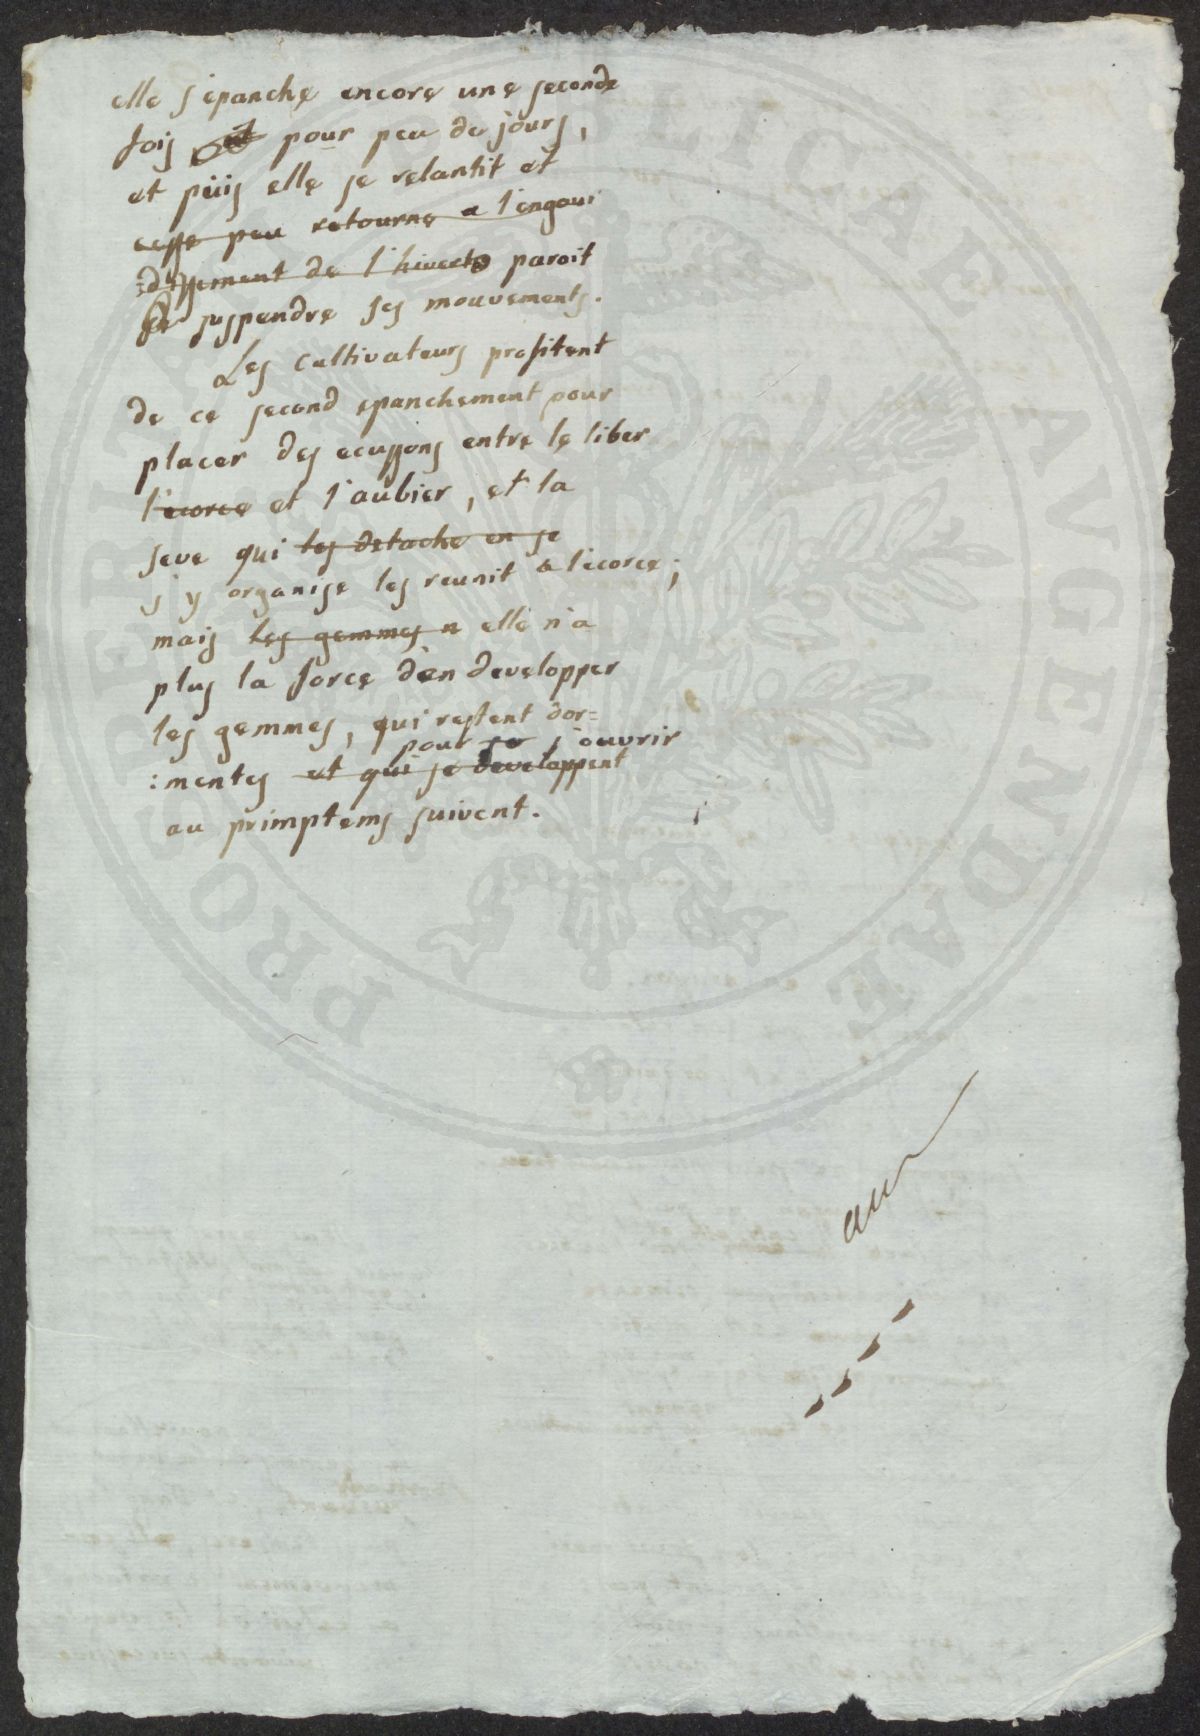 elle s'epanche encore une seconde
fois pour peu de jours,
et puis elle se relantit et
cesse peu retourne a l'engour
:dissement de l'hiverts paroit
suspendre ses mouvements.
Les cultivateurs profitent
de ce second epanchement pour
placer des ecussons entre le liber
l'ecorce et l'aubier, et la
seve qui les detache en se
s'y organise les reunit a l'ecorce;
mais les gemmes n elle n'a
plus la force d'en developper
les gemmes, qui restent dor=
pour se s'ouvrir
:mentes et qui se developpent
au primptems suivent.
PROSPERITATI PUBLICAE AVGENDAE